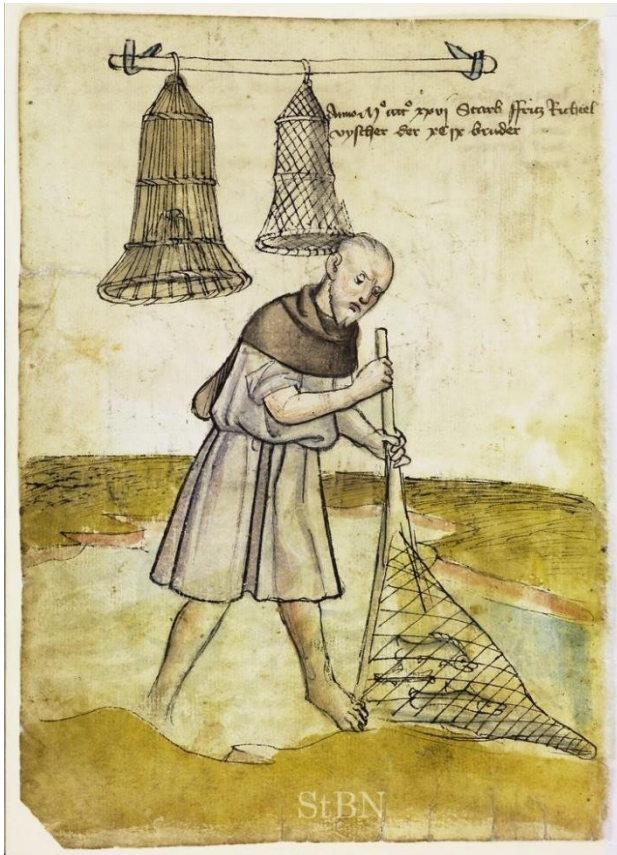 Anno M° xxvi Starb ffricz Richtel
vyscher der xCix bruder
StBN